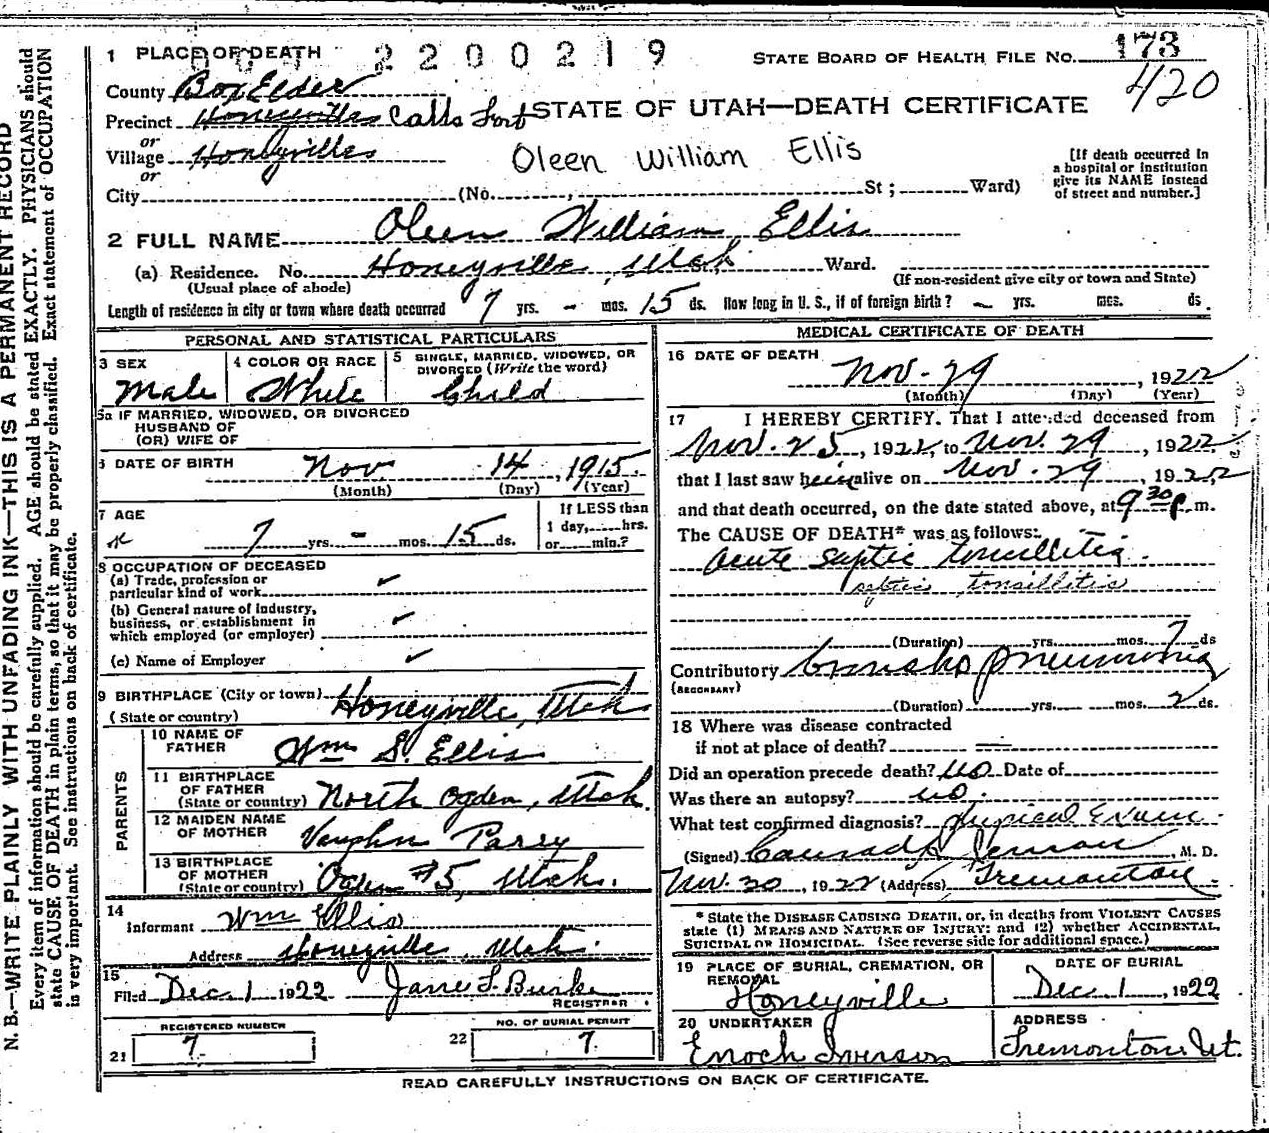 1 PLACE OF DEATH
2200219
STATE BOARD OF HEALTH FILE NO. 173
420
County Box Elder
STATE OF UTAH—DEATH CERTIFICATE
Precinct Honeyville Calls Fort
or
Village Honeyville
Oleen William Ellis
or
City (No. , St ; Ward)
[If death occurred in
a hospital or institution
give its NAME instead
of street and number.]
2 FULL NAME Oleen William Ellis
(a) Residence. No. Honeyville, Utah Ward.
(Usual place of abode)
(If non-resident give city or town and State)
Length of residence in city or town where death occurred 7 yrs. - mos. 15 ds. How long in U. S., if of foreign birth? - yrs. mos. ds.
PERSONAL AND STATISTICAL PARTICULARS
3 SEX
Male
4 COLOR OR RACE
White
5 SINGLE, MARRIED, WIDOWED, OR
DIVORCED (Write the word)
Child
5a IF MARRIED, WIDOWED, OR DIVORCED
HUSBAND OF
(OR) WIFE OF
6 DATE OF BIRTH Nov. 14, 1915.
(Month) (Day) (Year)
7 AGE
7 yrs. - mos. 15 ds.
If LESS than
1 day, hrs.
or min.?
8 OCCUPATION OF DECEASED
(a) Trade, profession or
particular kind of work ✓
(b) General nature of industry,
business, or establishment in
which employed (or employer) ✓
(c) Name of Employer ✓
9 BIRTHPLACE (City or town) Honeyville, Utah
(State or country)
PARENTS
10 NAME OF
FATHER Wm S. Ellis
11 BIRTHPLACE
OF FATHER
(State or country) North Ogden, Utah.
12 MAIDEN NAME
OF MOTHER Vaughn Parry
13 BIRTHPLACE
OF MOTHER
(State or country) Ogden #5, Utah.
14
Informant Wm Ellis
Address Honeyville, Utah.
15
Filed Dec. 1 1922 Jane F. Burke
REGISTRAR
REGISTERED NUMBER
21 7
NO. OF BURIAL PERMIT
22 7.
MEDICAL CERTIFICATE OF DEATH
16 DATE OF DEATH
Nov. 29, 1922
(Month) (Day) (Year)
17 I HEREBY CERTIFY, That I attended deceased from
Nov. 25, 1922, to Nov. 29, 1922
that I last saw him alive on Nov. 29, 1922
and that death occurred, on the date stated above, at 9 30 P. m.
The CAUSE OF DEATH* was as follows:
Acute septic tonsillitis.
septic tonsillitis
(Duration) yrs. mos. 7 ds
Contributory Broncho pneumonia
(SECONDARY)
(Duration) yrs. mos. 2 ds.
18 Where was disease contracted
if not at place of death?
Did an operation precede death? no Date of
Was there an autopsy? no.
What test confirmed diagnosis? Physical Exam.
(Signed) Conrad Jenson, M. D.
Nov. 30, 1922 (Address) Tremonton
* State the DISEASE CAUSING DEATH, or, in deaths from VIOLENT CAUSES
state (1) MEANS AND NATURE OF INJURY; and (2) whether ACCIDENTAL,
SUICIDAL OR HOMICIDAL. (See reverse side for additional space.)
19 PLACE OF BURIAL, CREMATION, OR
REMOVAL
Honeyville
DATE OF BURIAL
Dec. 1, 1922
20 UNDERTAKER
Enoch Iverson
ADDRESS
Tremonton, Ut.
READ CAREFULLY INSTRUCTIONS ON BACK OF CERTIFICATE.
N. B.—WRITE PLAINLY WITH UNFADING INK—THIS IS A PERMANENT RECORD
Every item of information should be carefully supplied. AGE should be stated EXACTLY. PHYSICIANS should
state CAUSE OF DEATH in plain terms, so that it may be properly classified. Exact statement of OCCUPATION
is very important. See instructions on back of certificate.